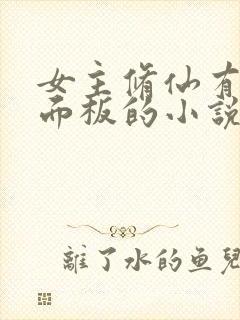 女主脩仙有
而板的小說
離了水的鱼兒